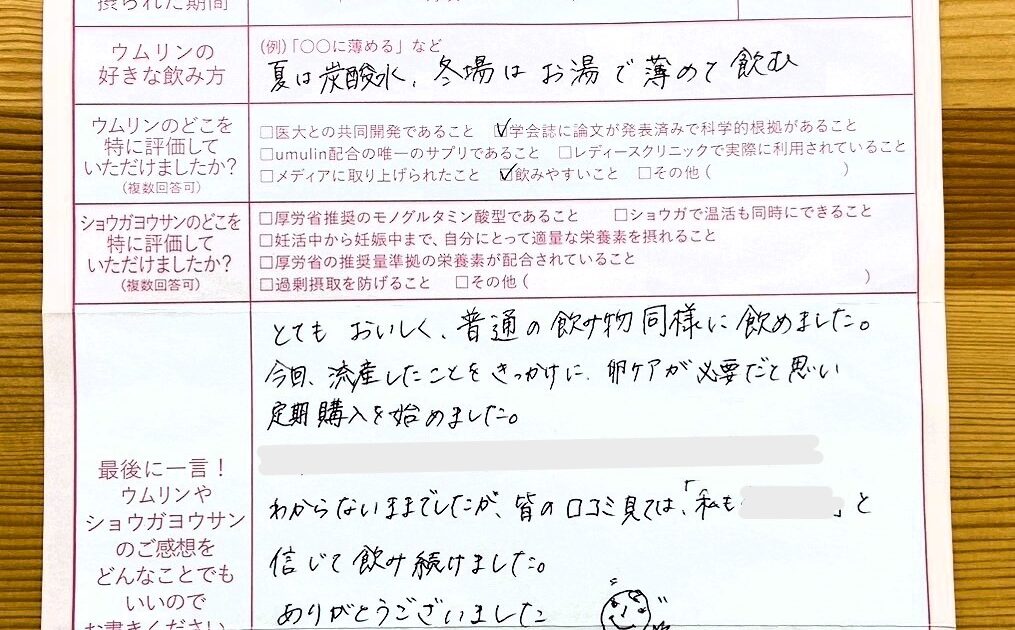 摂られた期間
ウムリンの
好きな飲み方
(例)「○○に薄める」など
夏は炭酸水、冬場はお湯で薄めて飲む
ウムリンのどこを
特に評価して
いただけましたか?
(複数回答可)
□医大との共同開発であること ☑学会誌に論文が発表済みで科学的根拠があること
□umulin配合の唯一のサプリであること □レディースクリニックで実際に利用されていること
□メディアに取り上げられたこと ☑飲みやすいこと □その他( )
ショウガヨウサンのどこを
特に評価して
いただけましたか?
(複数回答可)
□厚労省推奨のモノグルタミン酸型であること □ショウガで温活も同時にできること
□妊活中から妊娠中まで、自分にとって適量な栄養素を摂れること
□厚労省の推奨量準拠の栄養素が配合されていること
□過剰摂取を防げること □その他( )
最後に一言!
ウムリンや
ショウガヨウサン
のご感想を
どんなことでも
いいので
お書きください
とてもおいしく、普通の飲み物同様に飲めました。
今回、流産したことをきっかけに、卵ケアが必要だと思い
定期購入を始めました。
わからないままでしたが、皆の口コミ見ては、「私も 」と
信じて飲み続けました。
ありがとうございました